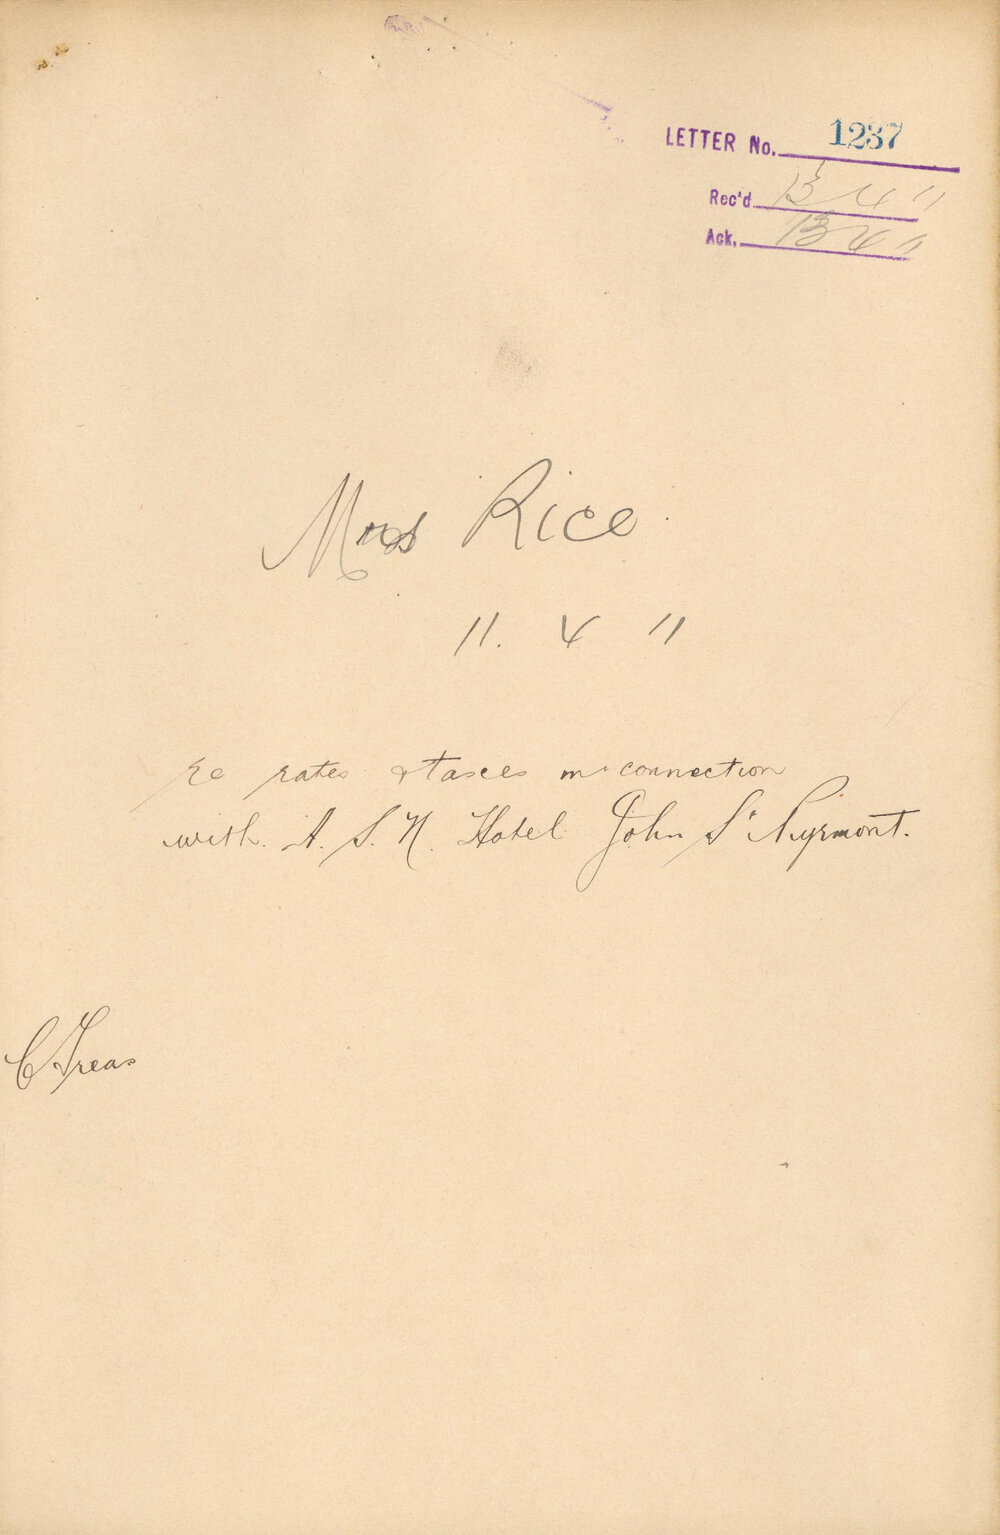 LETTER No. 1237
Rec'd 13 4 11
Ack. 13 4 11
Mrs Rice
11. 4 11
re rates & taxes in connection
with A. S. N. Hotel John St Pyrmont.
C Treas